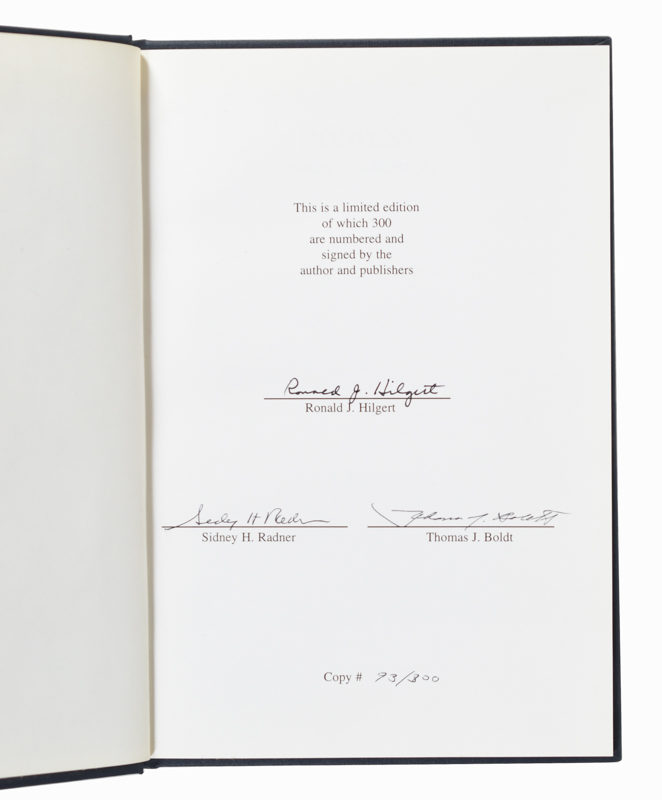 This is a limited edition
of which 300
are numbered and
signed by the
author and publishers
Ronald J. Hilgert
Ronald J. Hilgert
Sidney H Radner
Sidney H. Radner
Thomas J. Boldt
Thomas J. Boldt
Copy # 93/300